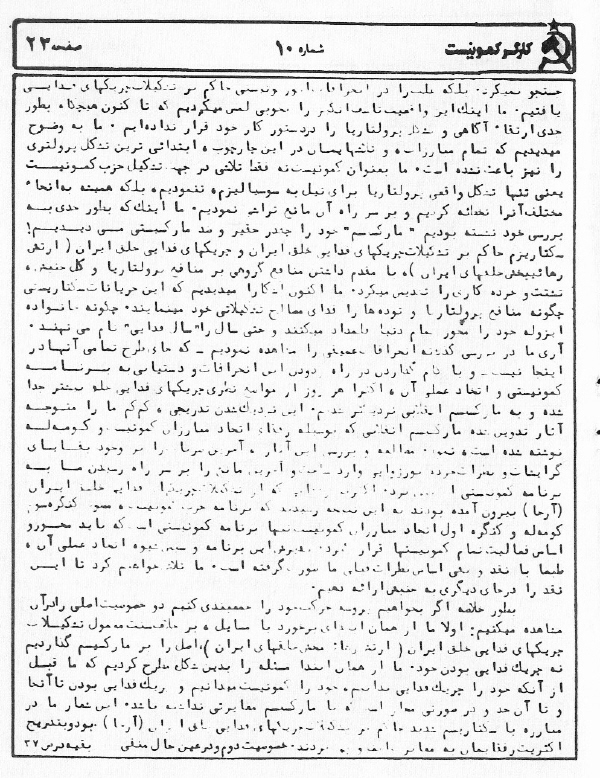 کارگر کمونیست
شماره ۱۰
صفحه ۲۳
جستجو میکرد، بلکه علت را در انحرافات حاکم بر تشکیلات چریکهای فدایی
یافتیم. ما اینک این واقعیت را بخوبی لمس میکردیم که تا کنون هیچگاه بطور
جدی ارتقاء آگاهی و تشکل پرولتاریا را در دستور کار خود قرار نداده‌ایم. ما به وضوح
میدیدیم که تمام مبارزات و تلاشهایمان در این چارچوب، ابتدائی ترین تشکل پرولتری
را نیز باعث نشده است. ما بعنوان کمونیست نه فقط تلاشی در جهت تشکیل حزب کمونیست
یعنی تنها تشکل واقعی پرولتاریا برای نیل به سوسیالیزم، ننمودیم، بلکه همیشه به انحاء
مختلف آنرا تخطئه کردیم و بر سر راه آن مانع تراشی نمودیم. ما اینک که بطور جدی به
بررسی خود نشسته بودیم "مارکسیسم" خود را چقدر حقیر و ضد مارکسیستی می دیدیم!
سکتاریزم حاکم بر تشکیلات چریکهای فدایی خلق ایران و چریکهای فدایی خلق ایران (ارتش
رهائیبخش خلقهای ایران)، با مقدم داشتن منافع گروهی بر منافع پرولتاریا و کل جنبش،
تشتت و خرده کاری را تقدیس میکرد. ما اکنون آشکارا میدیدیم که این جریانات سکتاریستی
چگونه منافع پرولتاریا و توده‌ها را فدای مصالح تشکیلاتی خود مینمایند. چگونه خانواده
ایزوله خود را محور تمام دنیا قلمداد میکنند و حتی سال را "سال فدایی" نام می نهند.
آری ما در بررسی گذشته انحرافات عمیقی را مشاهده نمودیم - که جای طرح تمامی آنها در
اینجا نیست - و با گام گذاردن در راه زدودن این انحرافات و دستیابی به برنامه
کمونیستی و اتخاذ عملی آن، اکثرا هر روز از مواضع نظری چریکهای فدایی خلق بیشتر جدا
شده و به مارکسیسم انقلابی نزدیکتر شدیم. این نزدیک شدن تدریجی، کم کم ما را متوجه
آثار تدوین شده مارکسیسم انقلابی که بوسیله رفقای اتحاد مبارزان کمونیست و کومه‌له
نوشته شده است، نمود. مطالعه و بررسی این آثار، آخرین ضربات را بر وجود بقایای
گرایشات و نظرات خرده بورژوایی وارد ساخت و آخرین مانع را بر سر راه رسیدن ما به
برنامه کمونیستی از بین برد. اکثریت رفقایی که از تشکیلات چریکهای فدایی خلق ایران
(آرخا) بیرون آمده بودند به این نتیجه رسیدند که برنامه حزب کمونیست، مصوب کنگره سوم
کومه‌له و کنگره اول اتحاد مبارزان کمونیست تنها برنامه کمونیستی است که باید محور و
اساس فعالیت تمام کمونیستها قرار گیرد. پذیرش این برنامه و سعی در اتخاذ عملی آن،
طبعا با نقد و نفی اساس نظرات قبلی ما صورت گرفته است. ما تلاش خواهیم کرد تا این
نقد را در جای دیگری به جنبش ارائه دهیم.
بطور خلاصه اگر بخواهیم پروسه حرکت خود را جمعبندی کنیم دو خصوصیت اصلی را در آن
مشاهده میکنیم: اولا ما از همان ابتدای برخورد با مسایل، بر خلاف سنت معمول تشکیلات
چریکهای فدایی خلق ایران (ارتش رهائیبخش خلقهای ایران)، اصل را بر مارکسیسم گذاردیم
نه چریک فدایی بودن خود. ما از همان ابتدا مسئله را بدین شکل مطرح کردیم که ما قبل
از آنکه خود را چریک فدایی بدانیم، خود را کمونیست میدانیم و چریک فدایی بودن تا آنجا
و تا آن حد و در صورتی مجاز است که با مارکسیسم مغایرتی نداشته باشد. این شعار ما در
مبارزه با سکتاریسم شدید حاکم بر تشکیلات چریکهای فدایی خلق ایران (آرخا) بود و بتدریج
اکثریت رفقایمان به معنای واقعی آن پی بردند. خصوصیت دوم و در عین حال منفی
بقیه در ص ۳۷